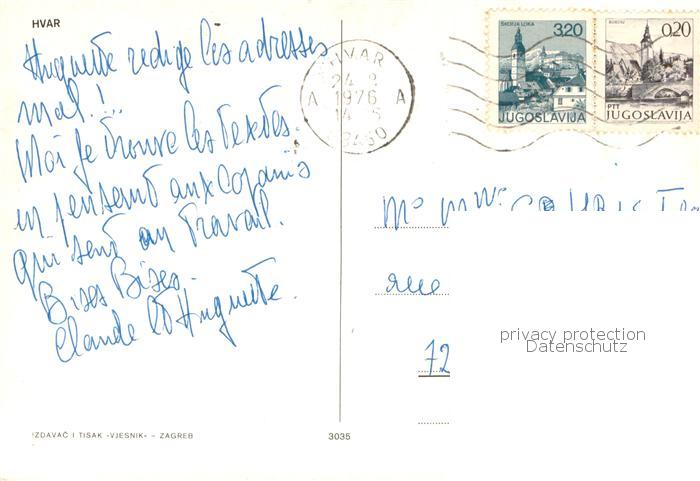 HVAR
Huguette redige les adresses
mal!...
Moi je trouve les textes.
en pensant aux copains
qui sont au travail.
Bises Bises.
Claude et Huguette.
IZDAVAČ I TISAK «VJESNIK» – ZAGREB
3035
HVAR
24 8
1976
A A
14
ŠKOFJA LOKA
3.20
JUGOSLAVIJA
0.20
PTT
JUGOSLAVIJA
rue
72
privacy protection
Datenschutz